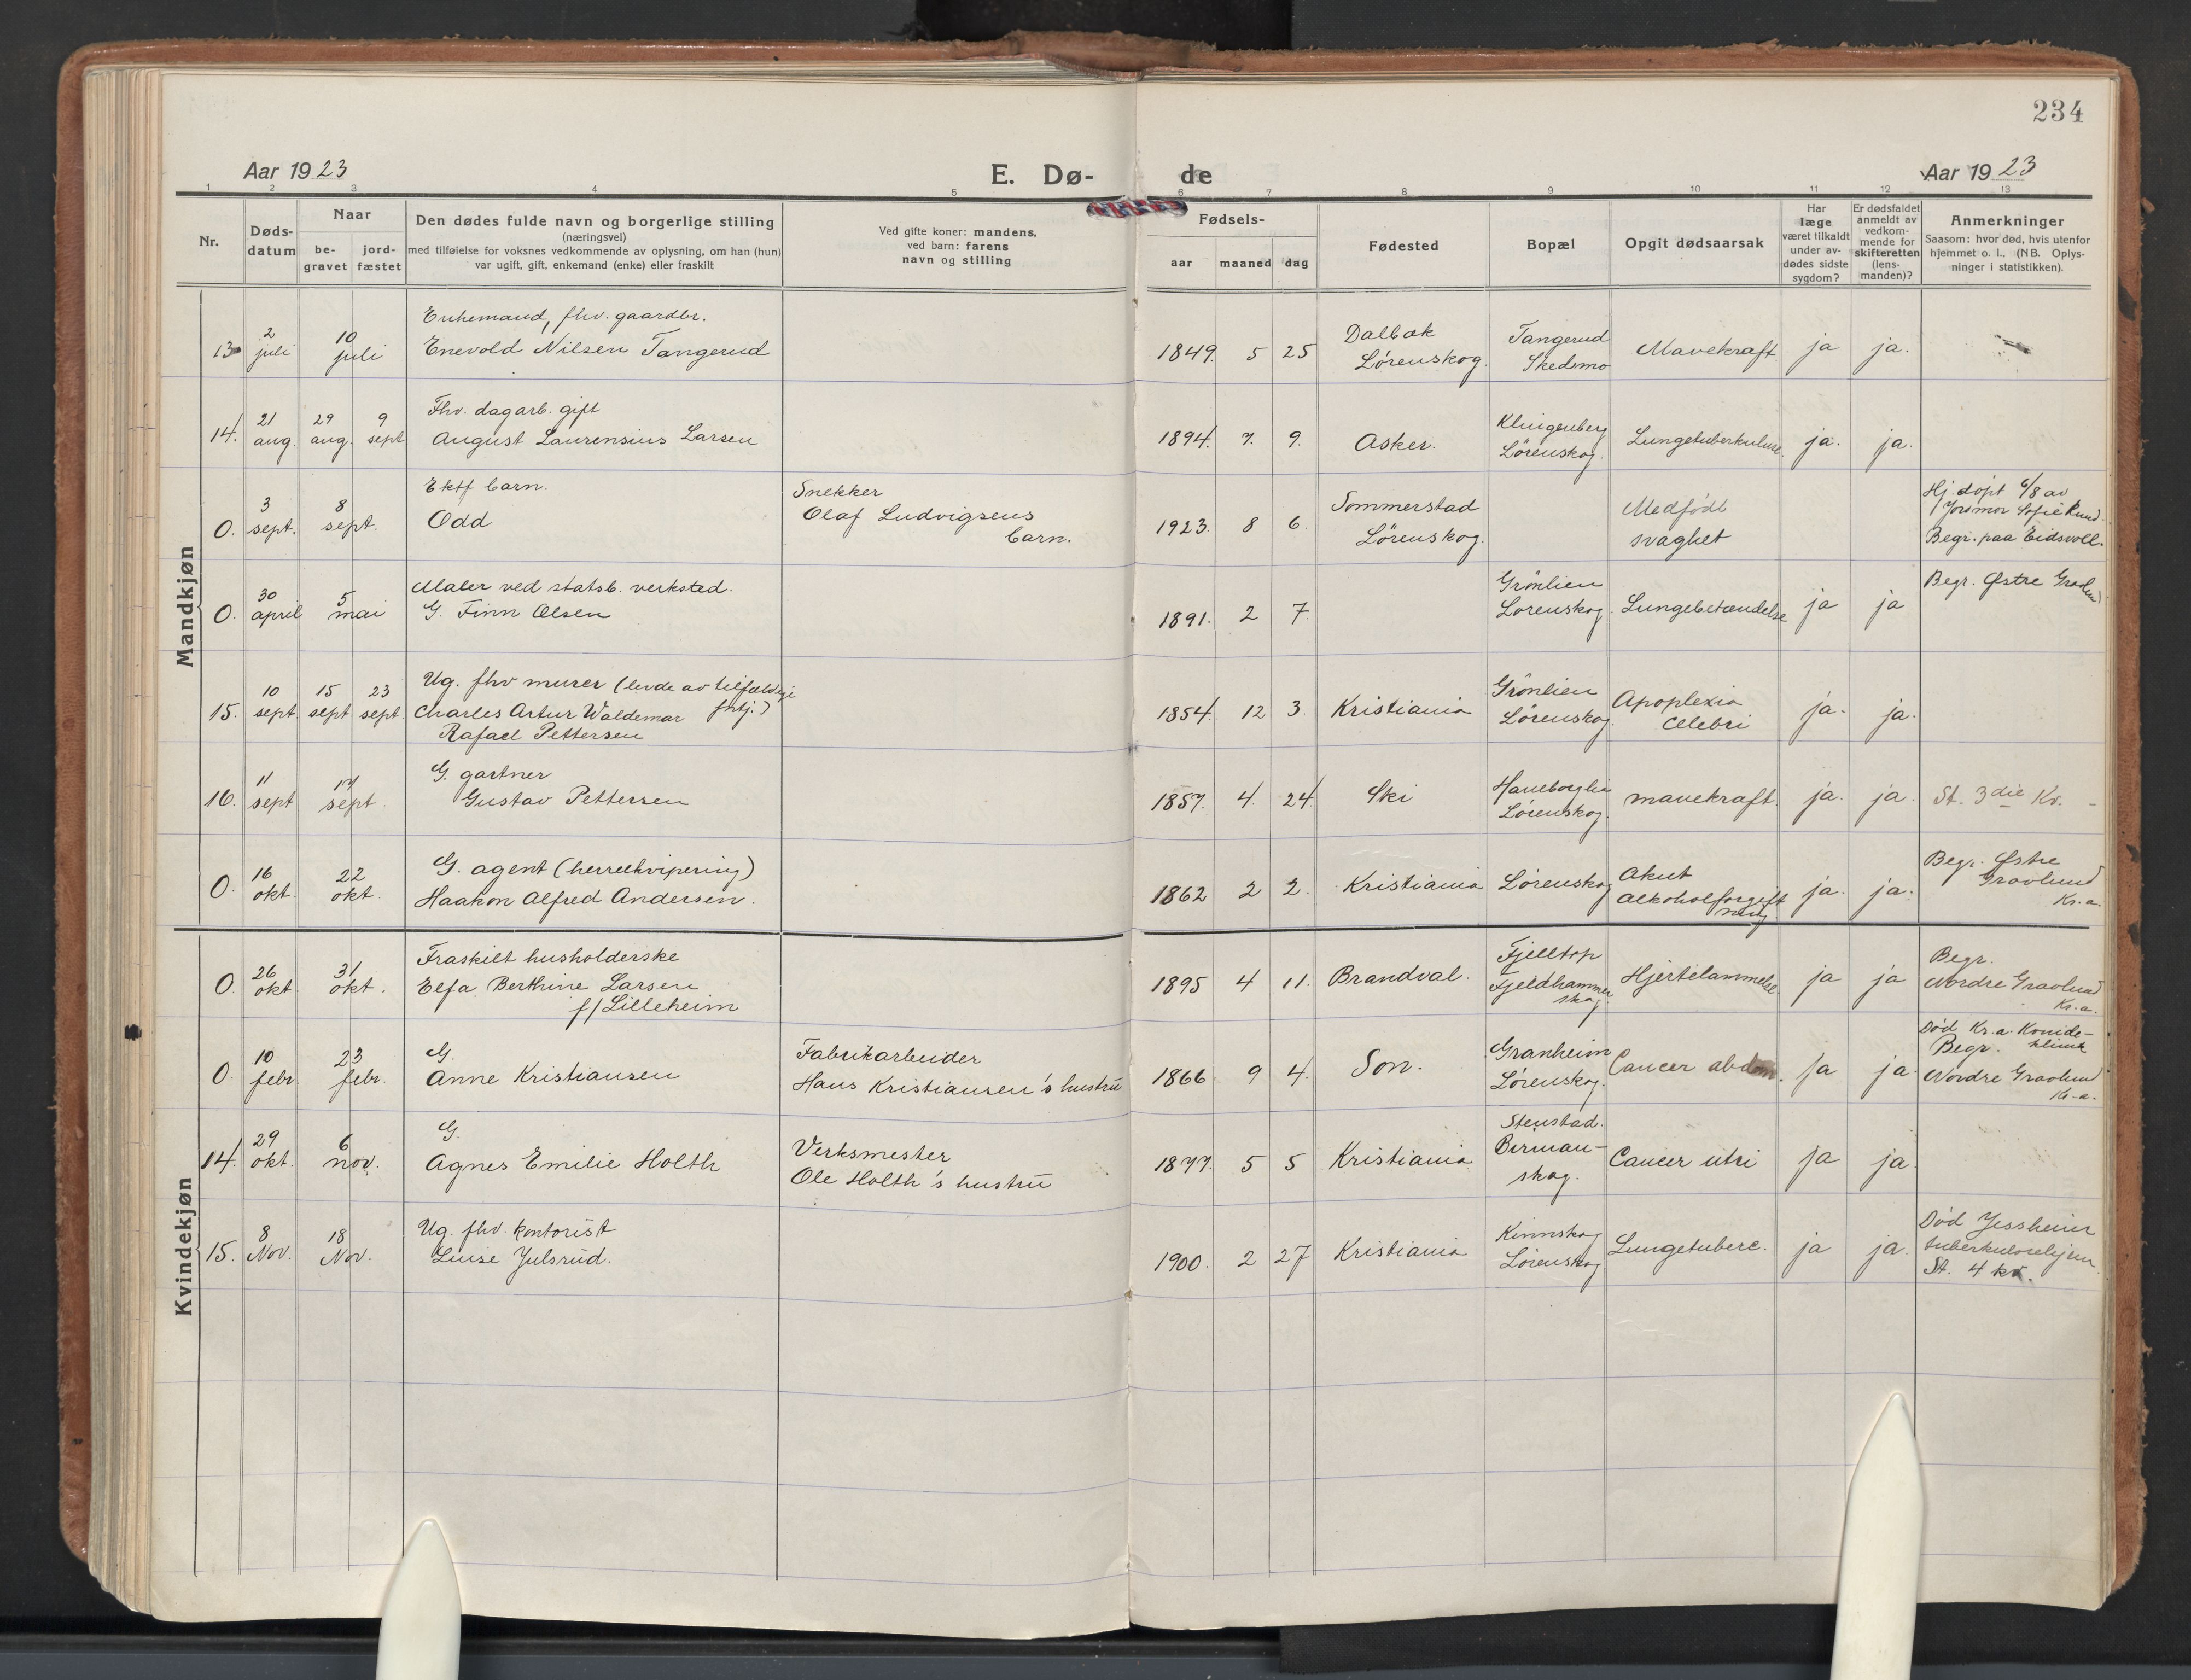 234
Aar 1923
E. Dø-
de
Aar 1923
1 2 3 4 5 6 7 8 9 10 11 12 13
Nr.
Døds-
datum
Naar
be-
gravet
jord-
fæstet
Den dødes fulde navn og borgerlige stilling
(næringsvei)
med tilføielse for voksnes vedkommende av oplysning, om han (hun)
var ugift, gift, enkemand (enke) eller fraskilt
Ved gifte koner: mandens,
ved barn: farens
navn og stilling
Fødsels-
aar maaned dag
Fødested
Bopæl
Opgit dødsaarsak
Har
læge
været tilkaldt
under av-
dødes sidste
sygdom?
Er dødsfaldet
anmeldt av
vedkom-
mende for
skifteretten
(lens-
manden)?
Anmerkninger
Saasom: hvor død, hvis utenfor
hjemmet o. l., (NB. Oplys-
ninger i statistikken).
Mandkjøn
13
2
juli
10
juli
Enkemand, fhv. gaardbr.
Enevold Nilsen Tangerud
1849. 5 25
Dalbak
Lørenskog.
Tangerud
Skedsmo
Mavekraft ja ja.
14.
21
aug.
29
aug.
9
sept
Fhv. dagarb. gift
August Laurensius Larsen
1894. 7. 9.
Asker.
Klingenberg
Lørenskog.
Lungetuberkulose. ja. ja.
0.
3
sept.
8
sept.
Ektf barn.
Odd
Snekker
Olaf Ludvigsens
barn.
1923. 8 6.
Sommerstad
Lørenskog.
Medfødt
svaghet
Hj. døpt 6/8 av
Jormor Sofie Rund.
Begr. paa Eidsvoll.
0.
30
april
5
mai
Maler ved statsb. verksted.
G. Finn Olsen
1891. 2 7.
Grønlien
Lørenskog.
Lungebetændelse ja ja
Begr. Østre Gravlund
15.
10
sept.
15
sept
23
sept.
Ug. fhv murer (levde av tilfældige
Charles Artur Waldemar
Rafael Pettersen
1854. 12 3.
Kristiania
Grønlien
Lørenskog.
Apoplexia
Celebri
ja. ja.
16.
11
sept
17
sept.
G. gartner
Gustav Pettersen
1857. 4. 24.
Ski
Haneborglia
Lørenskog.
mavekraft. ja. ja.
St. 3die Kv.
0.
16
okt.
22
okt.
G. agent (herreekvipering)
Haakon Alfred Andersen.
1862 2 2.
Kristiania
Lørenskog
Akut
alkoholforgift
ning.
ja. ja.
Begr. Østre
Gravlund
Kr.a.
Kvindekjøn
0.
26
okt.
31
okt.
Fraskilt husholderske
Elfa Berthine Larsen
f/ Lilleheim
1895 4 11.
Brandval.
Fjelltop
Fjeldhammer
skog
Hjertelammelse. ja ja
Begr.
Nordre Gravlund
Kr.a.
0.
10
febr.
23
febr.
G.
Anne Kristiansen
Fabrikarbeider
Hans Kristiansen's hustru
1866 9 4.
Son.
Granheim
Lørenskog.
Cancer abdom. ja ja
Død Kr.a. Kvinde-
klinik
Begr.
Nordre Gravlund
Kr.a.
14.
29
okt.
6
nov.
G.
Agnes Emilie Holth
Verksmester
Ole Holth's hustru
1877. 5 5
Kristiania
Stenstad.
Birman-
skog.
Cancer utri ja ja.
15.
8
Nov.
18
Nov.
Ug. fhv. kontorist
Luise Julsrud.
1900. 2 27
Kristiania
Kinnskog
Lørenskog
Lungetuberc. ja ja.
Død Jessheim
tuberkulosehjem.
St. 4 kv.